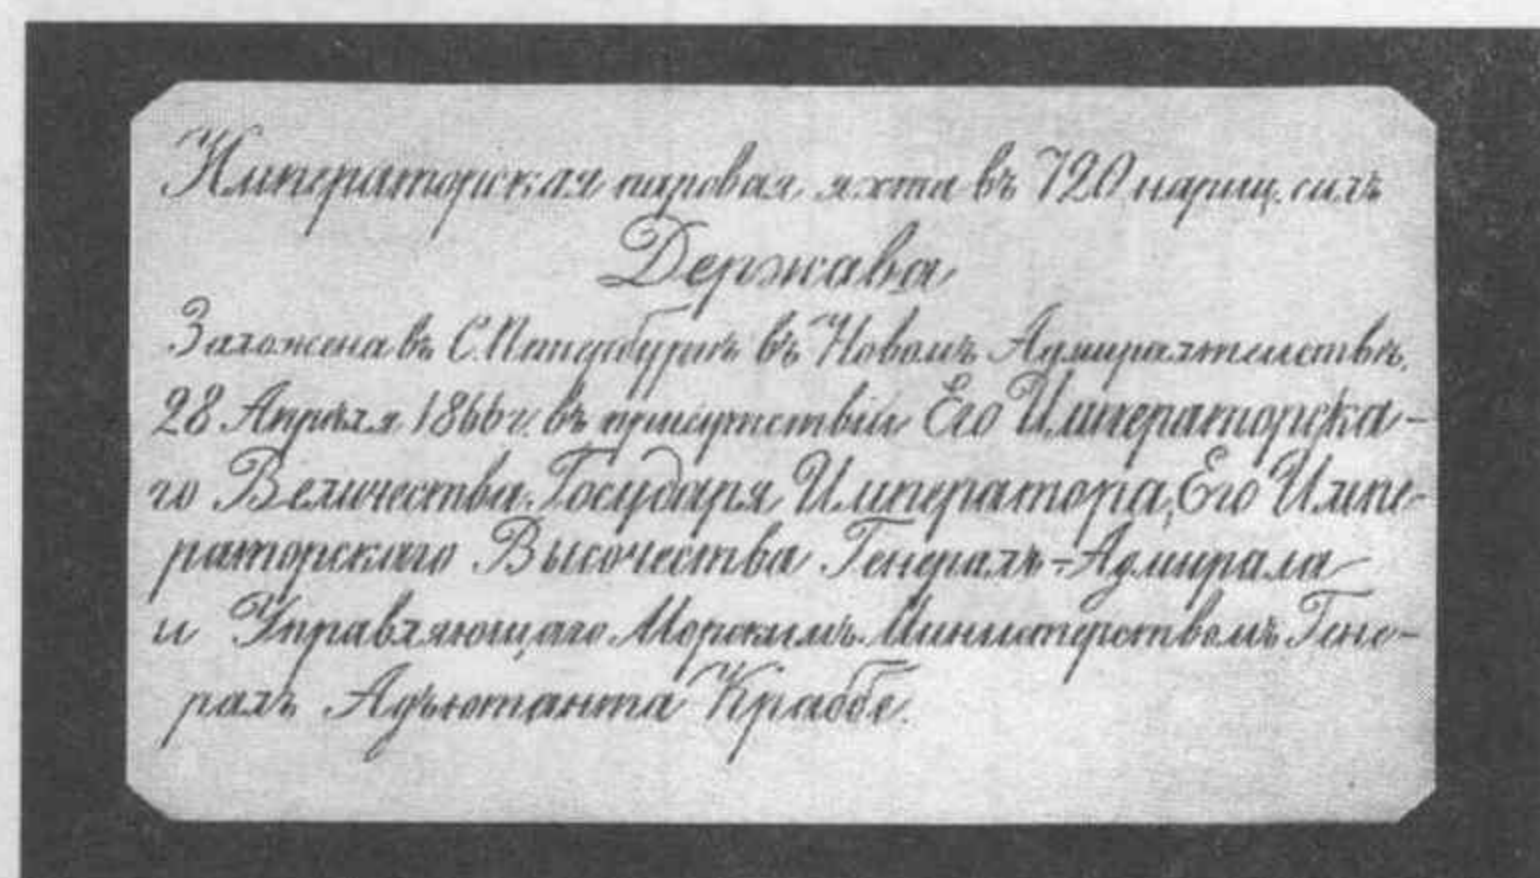 Императорская паровая яхта въ 720 нариц. силъ
Держава
Заложена въ С.Петербургѣ въ Новомъ Адмиралтействѣ,
28 Апрѣля 1866 г. въ присутствіи Его Императорска-
го Величества Государя Императора, Его Импе-
раторскаго Высочества Генералъ-Адмирала
и Управляющаго Морскимъ Министерствомъ Гене-
ралъ Адъютанта Краббе.